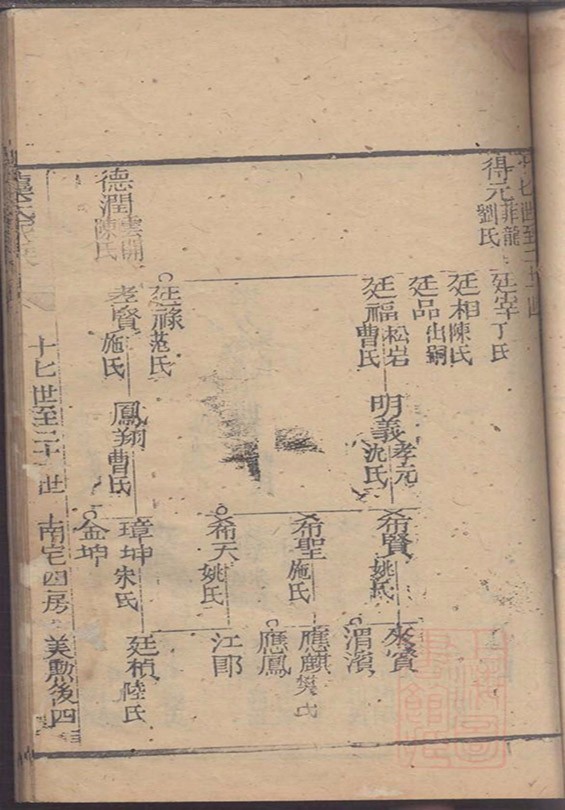 十七世至二十一世
得元 菲龍 劉氏
廷宰 丁氏
廷相 陳氏
廷品 出嗣
廷福 松岩 曹氏
廷祿 范氏
明義 孝元 沈氏
希賢 姚氏
希聖 施氏
希天 姚氏
來賓
渭濱
應麒 樊氏
應鳳
江郎
德潤 雲開 陳氏
孝賢 施氏
鳳翔 曹氏
璋坤 朱氏
金坤
廷楨 陸氏
十七世至二十一世 南宅四房 美勲後四